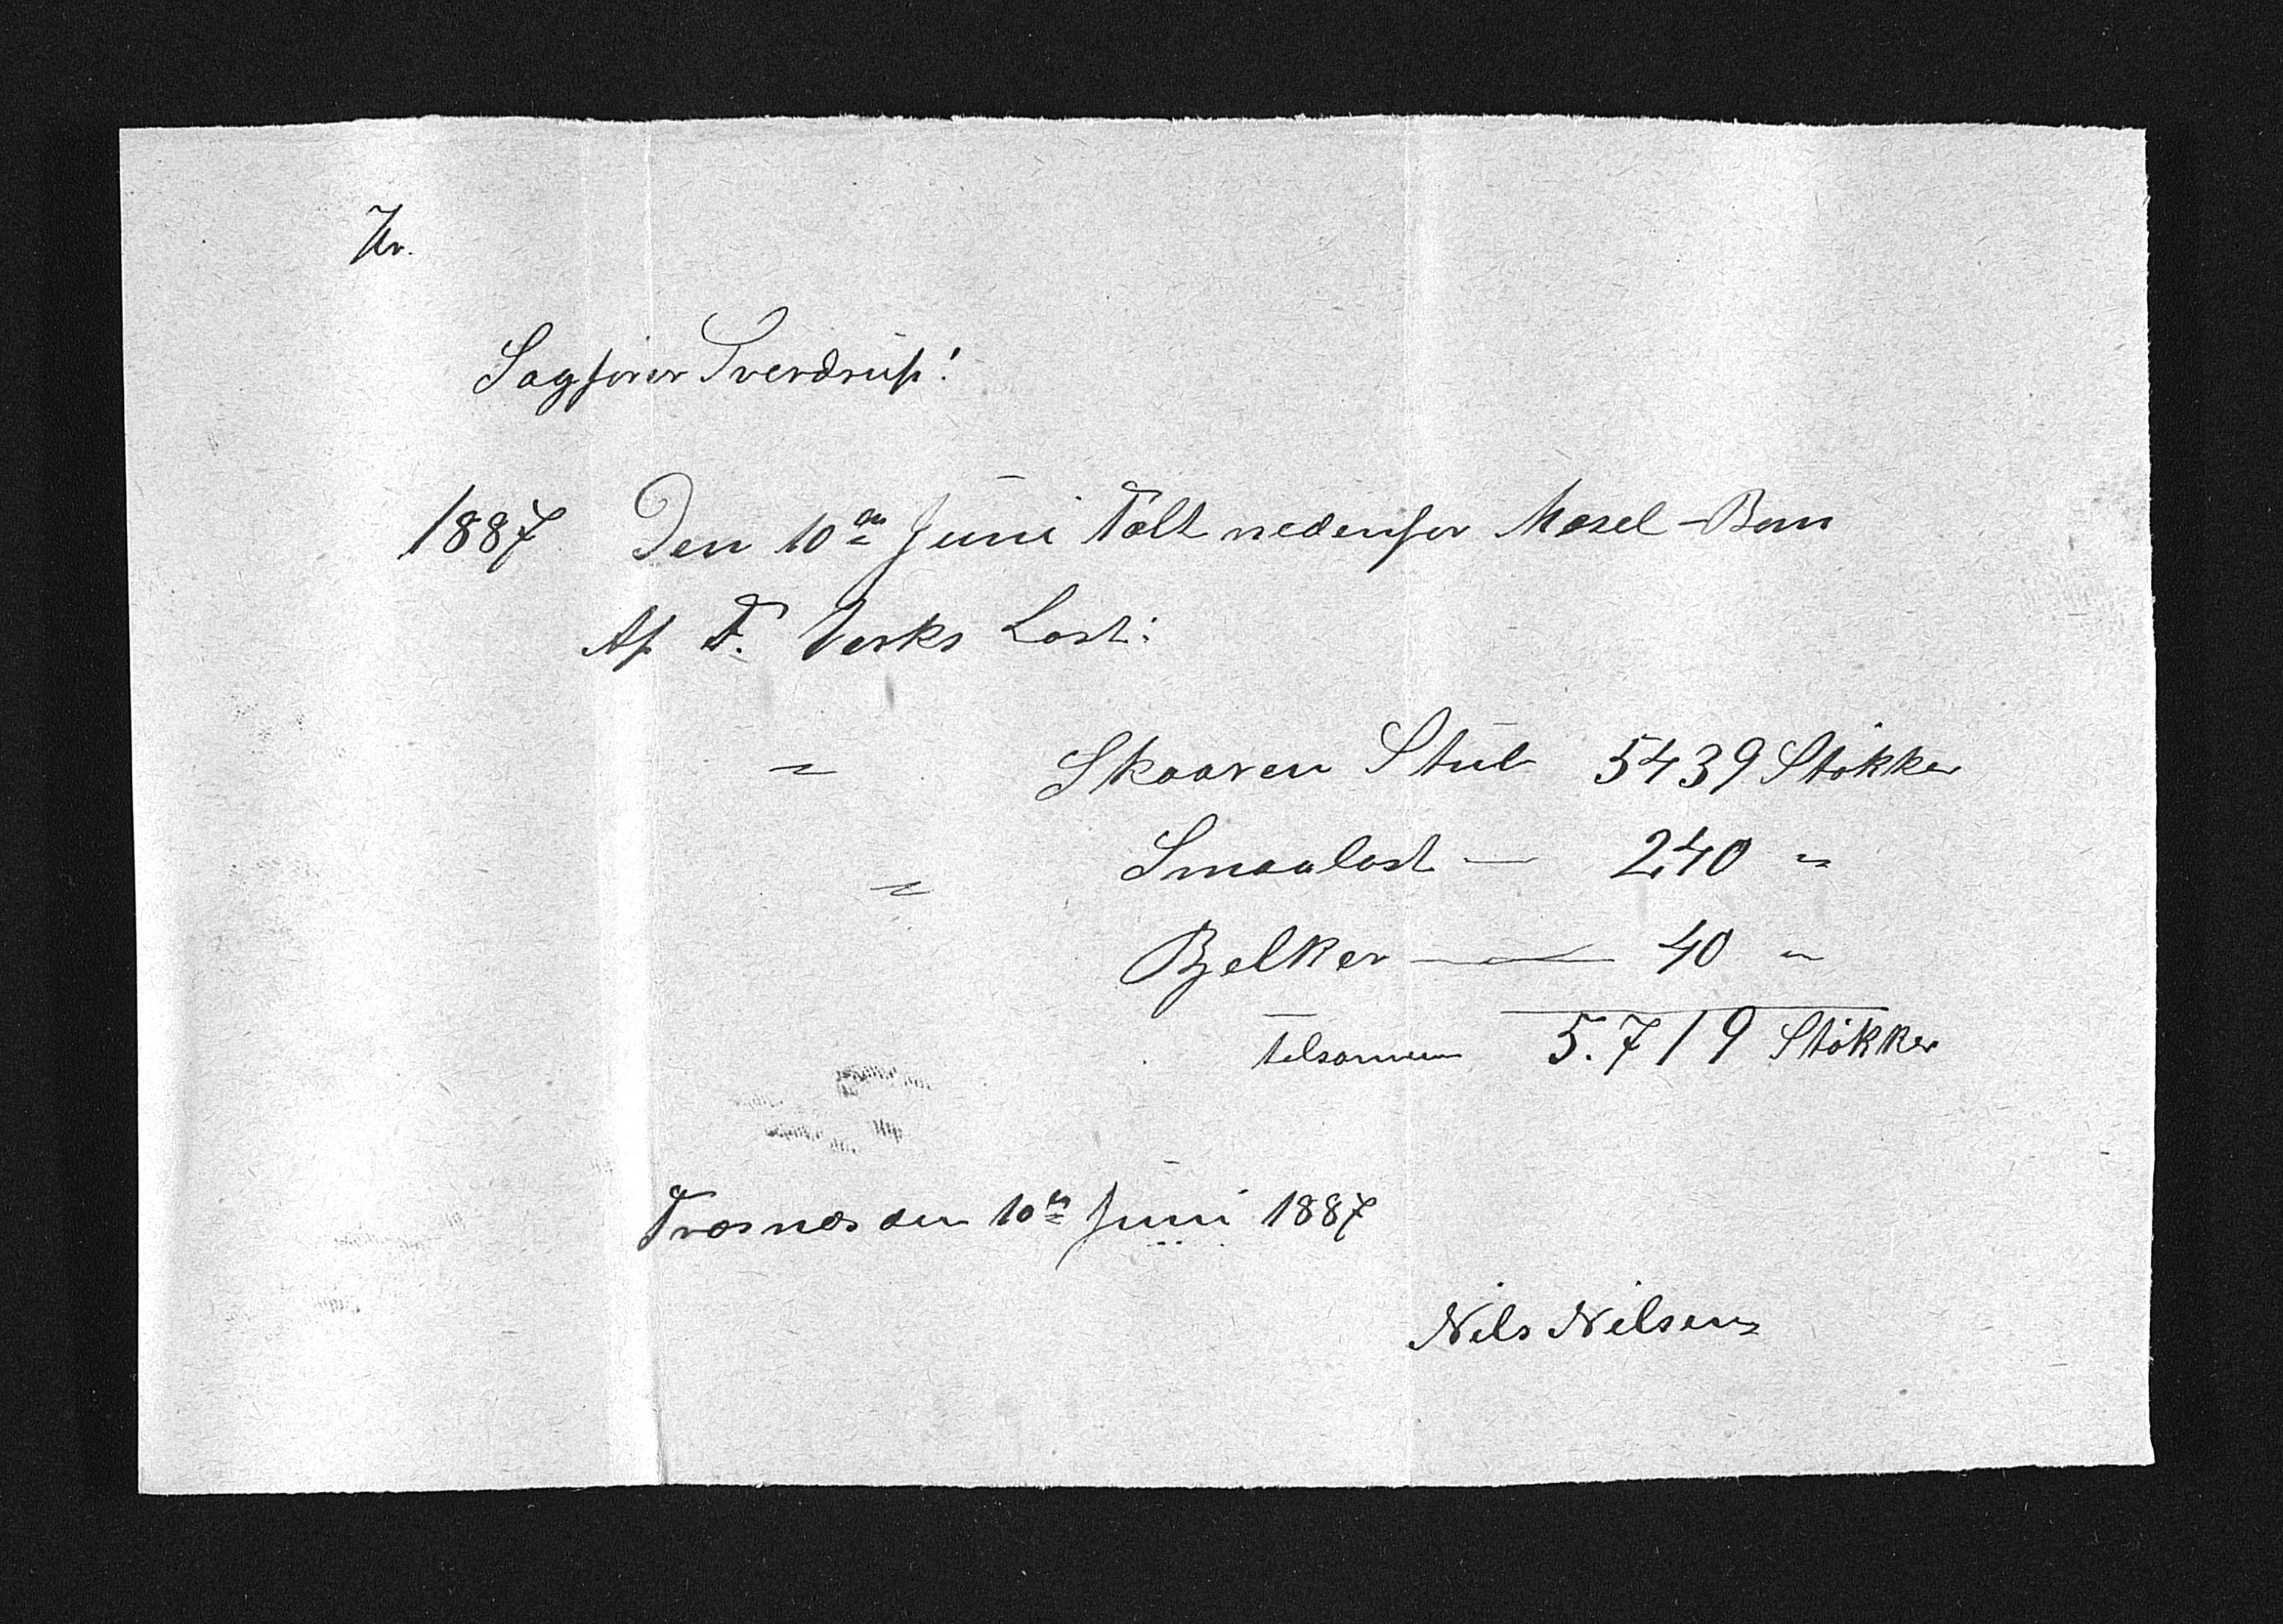 Hr.
Sagfører Sverdrup!
1887 Den 10de Juni Talt nedenfor Mosel-Bom
Af F. Verks Last:
" Skaaren Stub 5439 Støkker
" Smaalast — 240 "
Bjelker — 40 "
tilsammen 5.719 Støkker
Træsnæs den 10de Juni 1887
Nils Nilsen